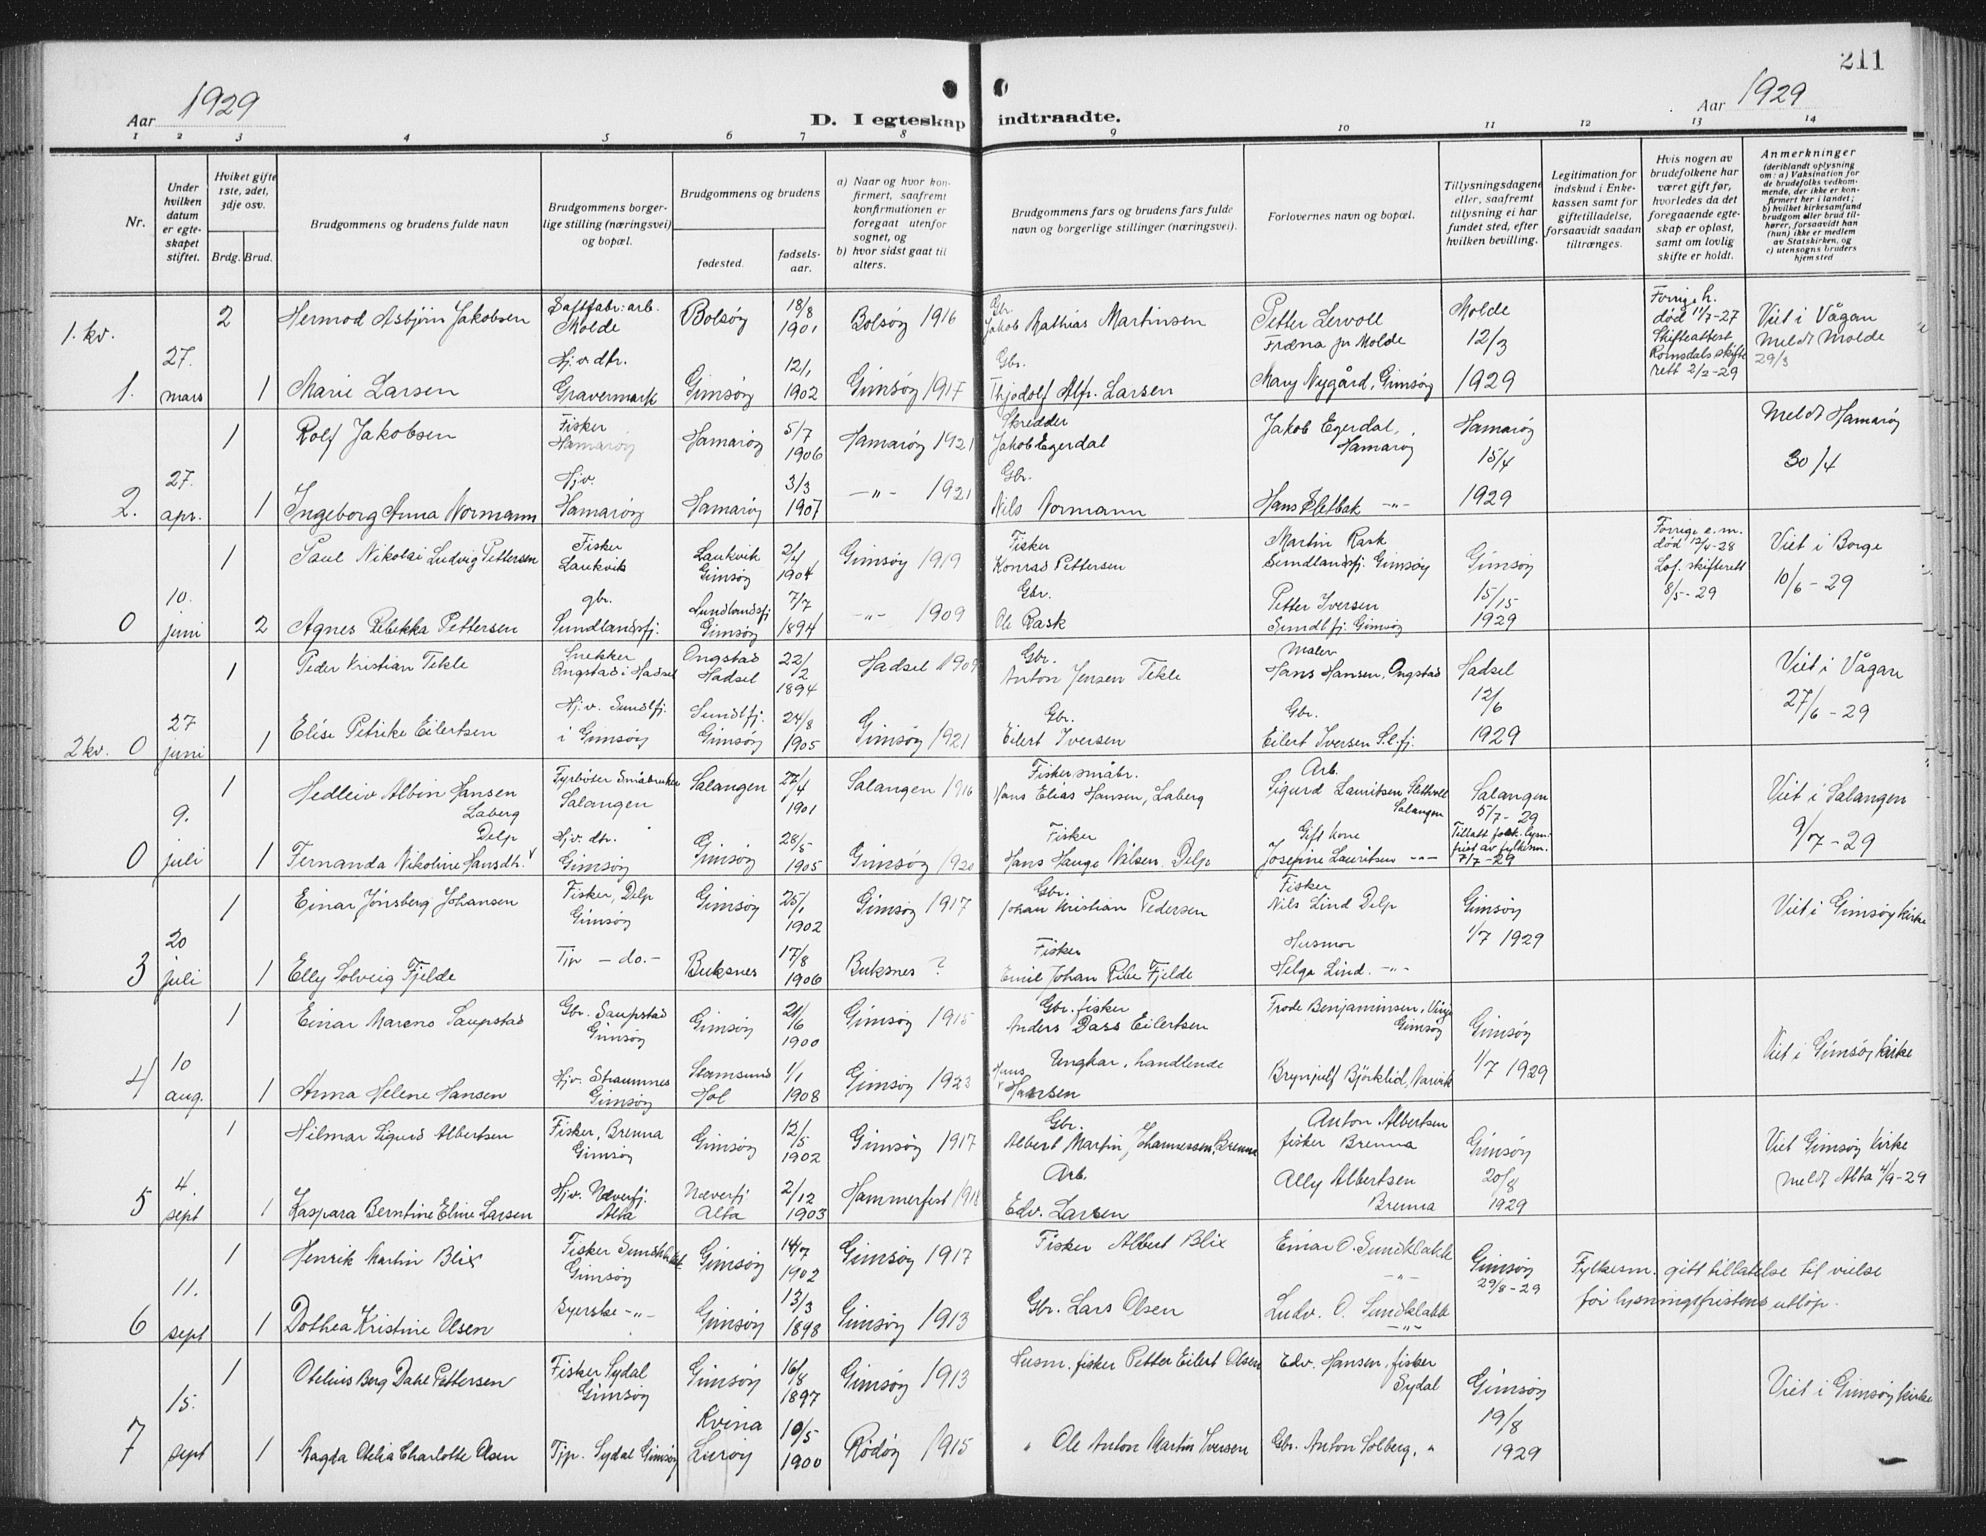 211
Aar 1929
Aar 1929
D. I egteskap indtraadte.
1 2 3 4 5 6 7 8 9 10 11 12 13 14
Nr.
Under hvilken datum er egteskapet stiftet.
Hviket gifte 1ste, 2det, 3dje osv.
Brdg. Brud.
Brudgommens og brudens fulde navn
Brudgommens borgerlige stilling (næringsvei) og bopæl.
Brudgommens og brudens
fødested.
fødselsaar.
a) Naar og hvor konfirmert, saafremt konfirmationen er foregaat utenfor sognet, og
b) hvor sidst gaat til alters.
Brudgommens fars og brudens fars fulde navn og borgerlige stillinger (næringsvei).
Forlovernes navn og bopæl.
Tillysningsdagene eller, saafremt tillysning ei har fundet sted, efter hvilken bevilling.
Legitimation for indskud i Enkekassen samt for giftetilladelse, forsaavidt saadan tiltrænges.
Hvis nogen av brudefolkene har været gift før, hvorledes da det foregaaende egteskap er opløst, samt om lovlig skifte er holdt.
Anmerkninger
(deriblandt oplysning om: a) Vaksination for de brudefolks vedkommende, der ikke er konfirmert her i landet; b) hvilket kirkesamfund brudgom eller brud tilhører, forsaavidt han (hun) ikke er medlem av Statskirken, og c) utensogns bruders hjemsted
1. kv.
2 Hermod Asbjörn Jakobsen Saftfabr: arb. Molde Bolsöy 18/8 1901 Bolsöy 1916 Gbr. Jakob Mathias Martinsen Petter Lervoll Fræna pr Molde Molde 12/3 Forrige h. död 11/7-27 Skifteattest Romsdals skifterett 2/2-29 Viet i Vågan Meldt Molde 29/3
1. 27. mars 1 Marie Larsen Hj. v. dtr. Gravermark Gimsöy 12/1 1902 Gimsöy 1917 Gbr. Thjodolf Alfr. Larsen Mary Nygård, Gimsöy 1929
1 Rolf Jakobsen Fisker Hamaröy Hamaröy 5/7 1906 Hamaröy 1921 Skredder Jakob Egerdal Jakob Egerdal, Hamaröy Hamaröy 15/4 Meldt Hamaröy 30/4
2. 27. apr. 1 Ingeborg Anna Normann Hj.v. Hamaröy Hamaröy 3/3 1907 -"- 1921 Gbr. Nils Normann Hans Sletbak -"- 1929
1 Paul Nikolai Ludvig Pettersen Fisker Laukvik Laukvik Gimsöy 2/4 1904 Gimsöy 1919 Fisker Konrad Pettersen Martin Rask Sundlandsfj. Gimsöy Gimsöy Forrige e.m. död 12/4-28 Lof. skifterett 8/5-29 Viet i Borge 10/6-29
0 10. juni 2 Agnes Rebekka Pettersen gbr. Sundlandsfj. Sundlandsfj Gimsöy 7/7 1894 -"- 1909 Gbr. Ole Rask Petter Iversen Sundlfj. Gimsöy 15/15 1929
1 Peder Kristian Tekle Snekker Ongstad i Hadsel Ongstad Hadsel 22/2 1894 Hadsel 1909 Gbr. Anton Jensen Tekle Maler Hans Hansen, Ongstad Hadsel 12/6 Viet i Vågan 27/6-29
2 kv. 0 27 juni 1 Elise Petrike Eilertsen Hj. v. Sundlfj. i Gimsöy Sundlfj. Gimsöy 24/8 1905 Gimsöy 1921 Gbr. Eilert Iversen Gbr. Eilert Iversen S.l.fj. 1929
1 Hedleiv Albin Hansen Laberg Fyrböter Småbruker Salangen Salangen 27/4 1901 Salangen 1916 Fisker, småbr. Hans Elias Hansen, Laberg Arb. Sigurd Lauritsen Sletvoll Salangen Salangen 5/7-29 Viet i Salangen 9/07-29
0 9. juli 1 Fernanda Nikoline Hansdtr. Delp Hj.v. dtr. Gimsöy Gimsöy 28/5 1905 Gimsöy 1920 Fisker Hans Hauge Nilsen Delp Gift kone Josefine Lauritsen -"- Tillatt fork. lysn. frist av fylkesm. 7/7-29
1 Einar Jönsberg Johansen Fisker, Delp Gimsöy Gimsöy 25/1 1902 Gimsöy 1917 Gbr. Johan Kristian Pedersen Fisker Nils Lind Delp Gimsöy 1/7 1929 Viet i Gimsöy kirke
3 20 juli 1 Elly Solveig Fjelde Tjp -do.- Buksnes 17/8 1906 Buksnes ? Fisker Emil Johan Ribe Fjelde Husmor Helga Lind. -"-
1 Einar Mareno Saupstad Gbr. Saupstad Gimsöy Gimsöy 21/6 1900 Gimsöy 1915 Gbr. fisker Anders Dass Eilertsen Frode Benjaminsen, Vinje Gimsöy Gimsöy 1/7 1929 Viet i Gimsöy kirke
4 10 aug. 1 Anna Helene Hansen Hj.v. Straumnes Gimsöy Stamsund Hol 1/1 1908 Gimsöy 1923 Ungkar, handlende Hans Hansen Brynjulf Björklid, Narvik
1 Hilmar Sigurd Albertsen Fisker, Brenna Gimsöy Gimsöy 12/5 1902 Gimsöy 1917 Gbr. Albert Martin Johannessen, Brenna Anton Albertsen fisker Brenna Gimsöy 20/8 1929 Viet Gimsöy kirke meldt Alta 4/9-29
5 4. sept 1 Kaspara Berntine Eline Larsen Hj.v. Næverfj. Alta Næverfj Alta 2/12 1903 Hammerfest 1918 Arb. Edv. Larsen Ally Albertsen Brenna
1 Henrik Martin Blix Fisker Sundklakk Gimsöy Gimsöy 14/7 1902 Gimsöy 1917 Fisker Albert Blix Einar O. Sundklakk -"- Gimsöy 29/8-29 Fylkesm. gitt tillatelse til vielse för lysningsfristens utlöp.
6 11. sept 1 Dothea Kristine Olsen Syerske -"- Gimsöy 13/3 1898 Gimsöy 1913 Gbr. Lars Olsen Ludv. O. Sundklakk -"-
1 Otelius Berg Dahl Pettersen Fisker Sydal Gimsöy Gimsöy 16/8 1897 Gimsöy 1913 Husm. fisker Petter Eilert Olsen Edv. Hansen, fisker Sydal Gimsöy 19/8 1929 Viet i Gimsöy kirke
7 15. sept 1 Magda Otelia Charlotte Olsen Tjp. Sydal Gimsöy Kvina Luröy 10/5 1900 Rödöy 1915 " Ole Anton Martin Iversen Gbr. Anton Solberg, "